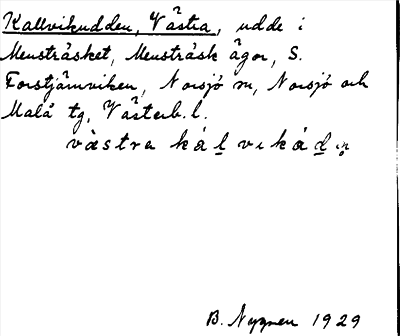 Kallvikudden, Västra, udde i
Mensträsket, Mensträsk ägor, S.
Forstjärnviken, Norsjö sn, Norsjö och
Malå tg, Västerb. l.
västra
B. Nygren 1929